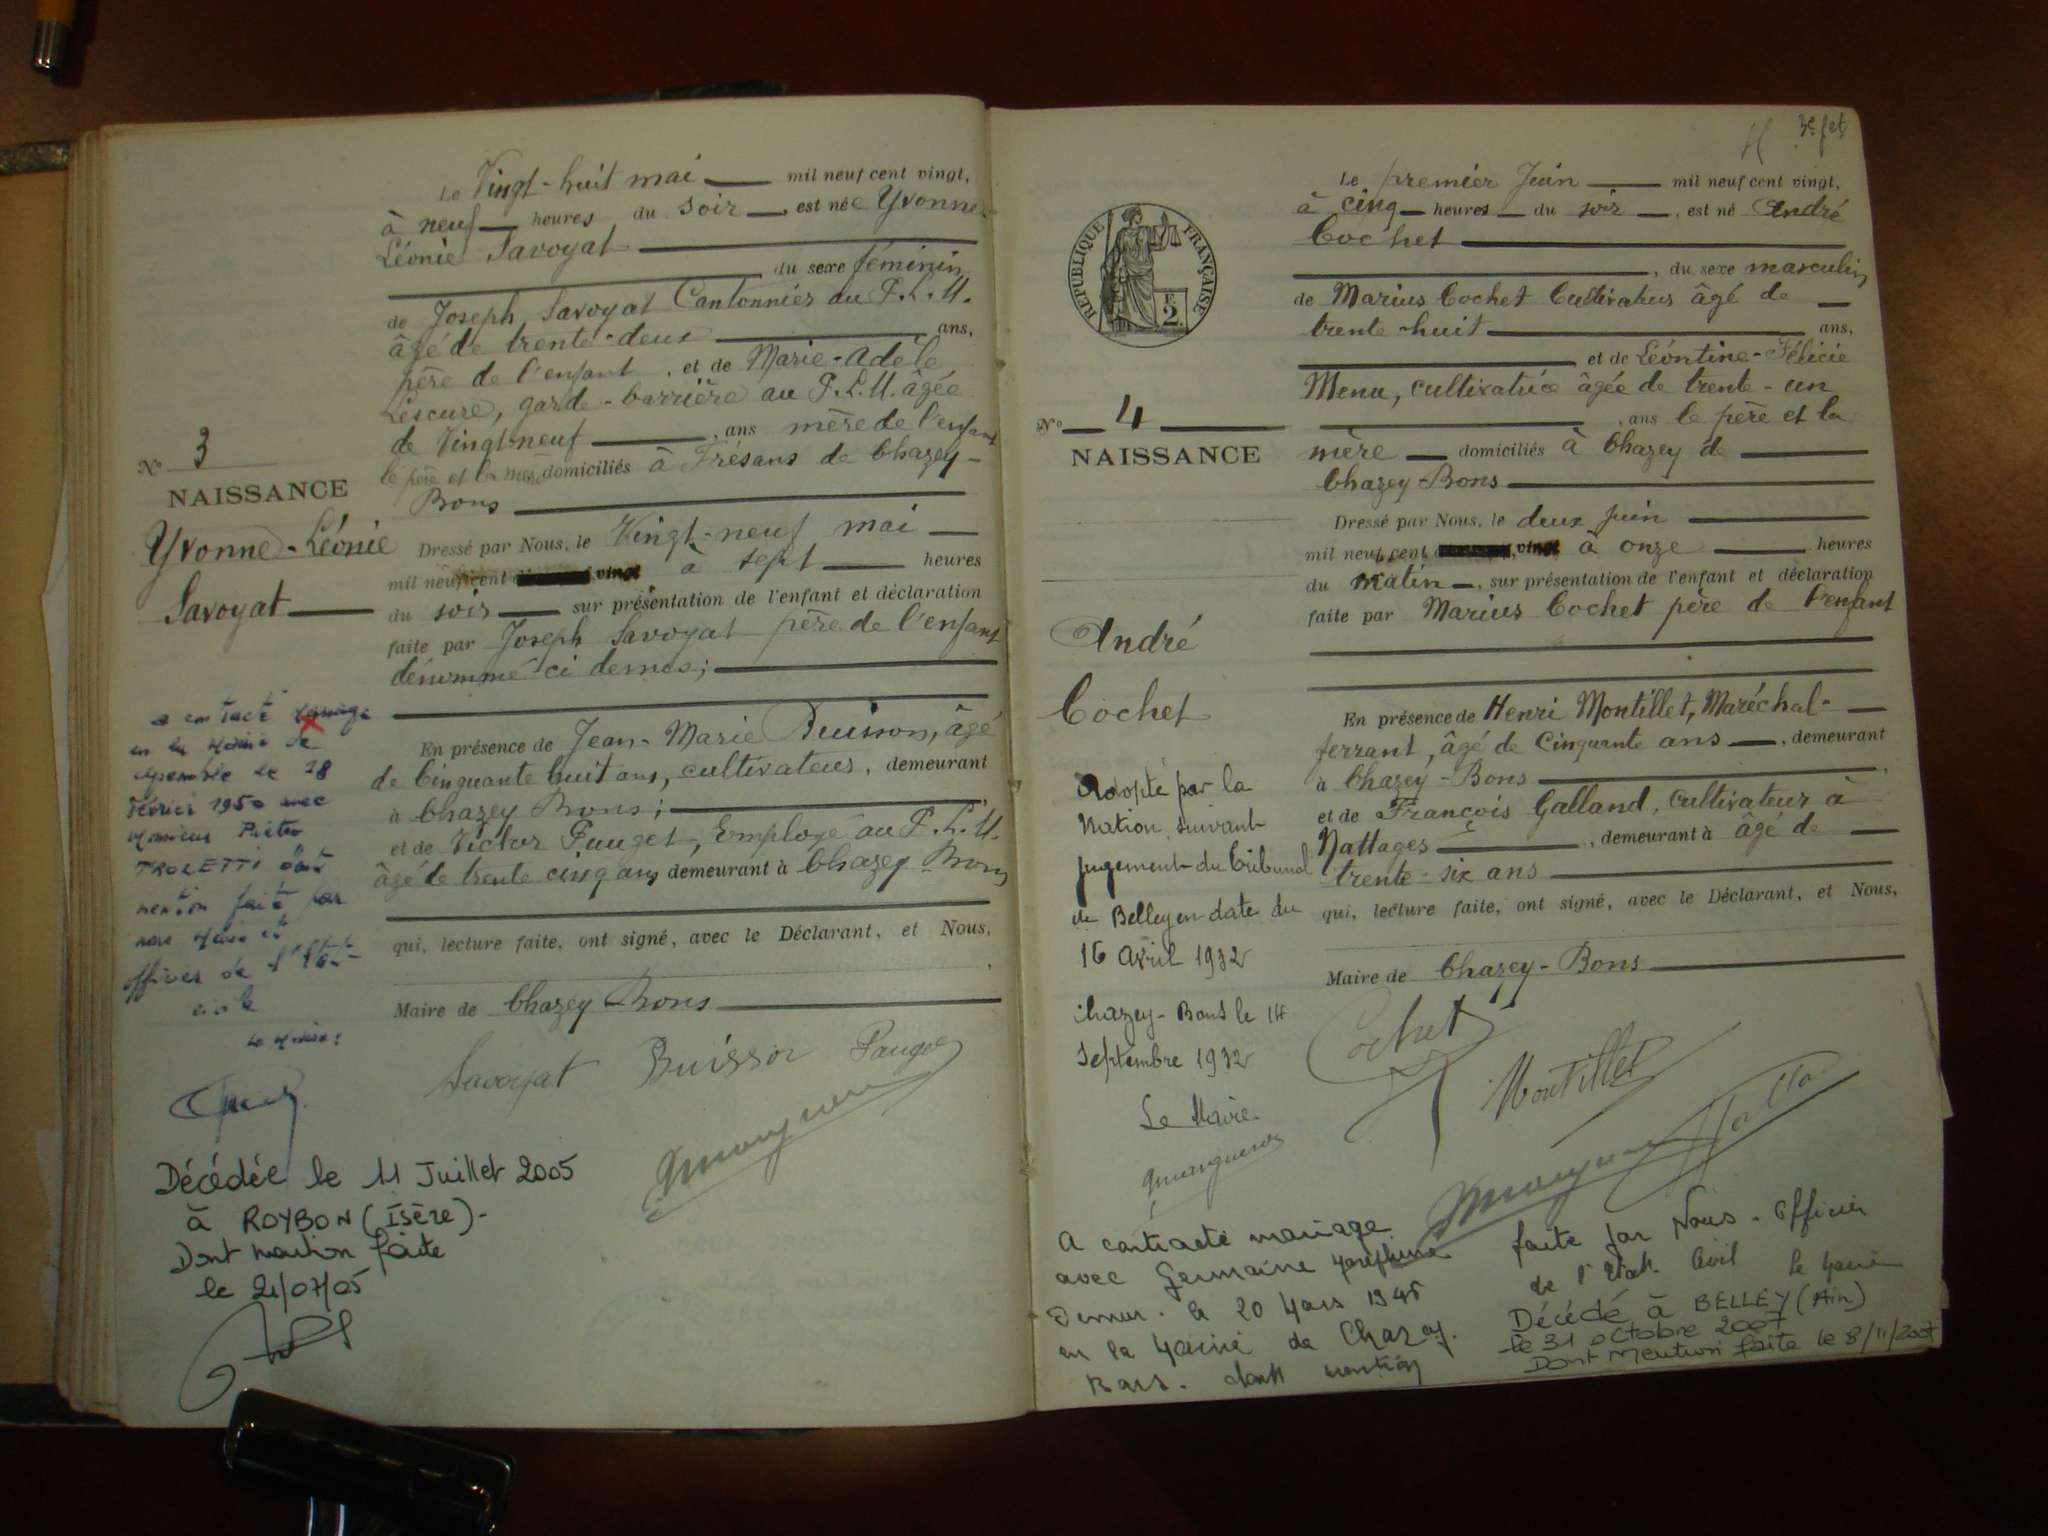 Le Vingt-huit mai mil neuf cent vingt,
à neuf heures du soir, est née Yvonne
Léonie Savoyat
du sexe féminin
de Joseph Savoyat Cantonnier au P.L.M.
âgé de trente-deux ans,
père de l'enfant, et de Marie-Adèle
Lescure, garde-barrière au P.L.M. âgée
de Vingt-neuf, ans mère de l'enfant
le père et la mère domiciliés à Frésans de Chazey-
Bons
Dressé par Nous, le Vingt-neuf mai
mil neuf cent vingt à sept heures
du soir sur présentation de l'enfant et déclaration
faite par Joseph Savoyat père de l'enfant
dénommé ci dessus;
En présence de Jean-Marie Buisson, âgé
de Cinquante huit ans, cultivateur, demeurant
à Chazey Bons;
et de Victor Pauget, Employé au P.L.M.
âgé de trente cinq ans, demeurant à Chazey Bons
qui, lecture faite, ont signé, avec le Déclarant, et Nous,
Maire de Chazey Bons
Savoyat Buisson Pauget
No 3
NAISSANCE
Yvonne-Léonie
Savoyat
a contracté mariage
en la mairie de
Grenoble le 18
Février 1950 avec
Monsieur Pietro
TROLETTI dont
mention faite par
nous Maire et
officier de l'Etat
civil
Le Maire:
Décédée le 11 Juillet 2005
à ROYBON (Isère)-
Dont mention faite
le 21/07/05
3e fet
REPUBLIQUE FRANÇAISE
2
Le premier Juin mil neuf cent vingt,
à cinq heures du soir, est né André
Cochet
, du sexe masculin
de Marius Cochet Cultivateur âgé de
trente-huit ans,
et de Léontine-Félicie
Menu, cultivatrice âgée de trente-un
, ans le père et la
mère domiciliés à Chazey de
Chazey-Bons
Dressé par Nous, le deux Juin
mil neuf cent vingt à onze heures
du matin, sur présentation de l'enfant et déclaration
faite par Marius Cochet père de l'enfant
En présence de Henri Montillet, Maréchal-
ferrant, âgé de Cinquante ans, demeurant
à Chazey-Bons
et de François Galland, cultivateur à
Nattages, demeurant à âgé de
trente-six ans
qui, lecture faite, ont signé, avec le Déclarant, et Nous,
Maire de Chazey-Bons
Cochet
Montillet
No 4
NAISSANCE
André
Cochet
Adopté par la
Nation suivant
jugement du Tribunal
de Belley en date du
16 Avril 1932
Chazey-Bons le 14
Septembre 1932
Le Maire
A contracté mariage
avec Germaine Joséphine
le 20 Mars 1946
en la Mairie de Chazey.
Bons. dont mention
faite par Nous. Officier
de l'Etat Civil le Maire
Décédé à BELLEY (Ain)
le 31 octobre 2007
Dont mention faite le 8/11/2007